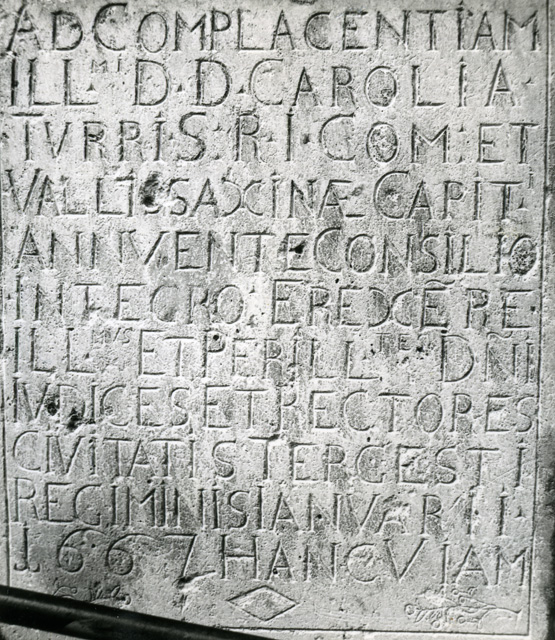 AD COMPLACENTIAM
ILL.MI D. D. CAROLI A
TVRRIS. R. I. COM. ET
VALLIS SAXINÆ CAPIT.
ANNVENTE CONSILIO
INTEGRO. EREXERE
ILL.MVS ET PERILL.TRE DÑI
IVDICES ET RECTORES
CIVITATIS TERGESTI
REGIMINIS IANVARII
1667 HANC VIAM